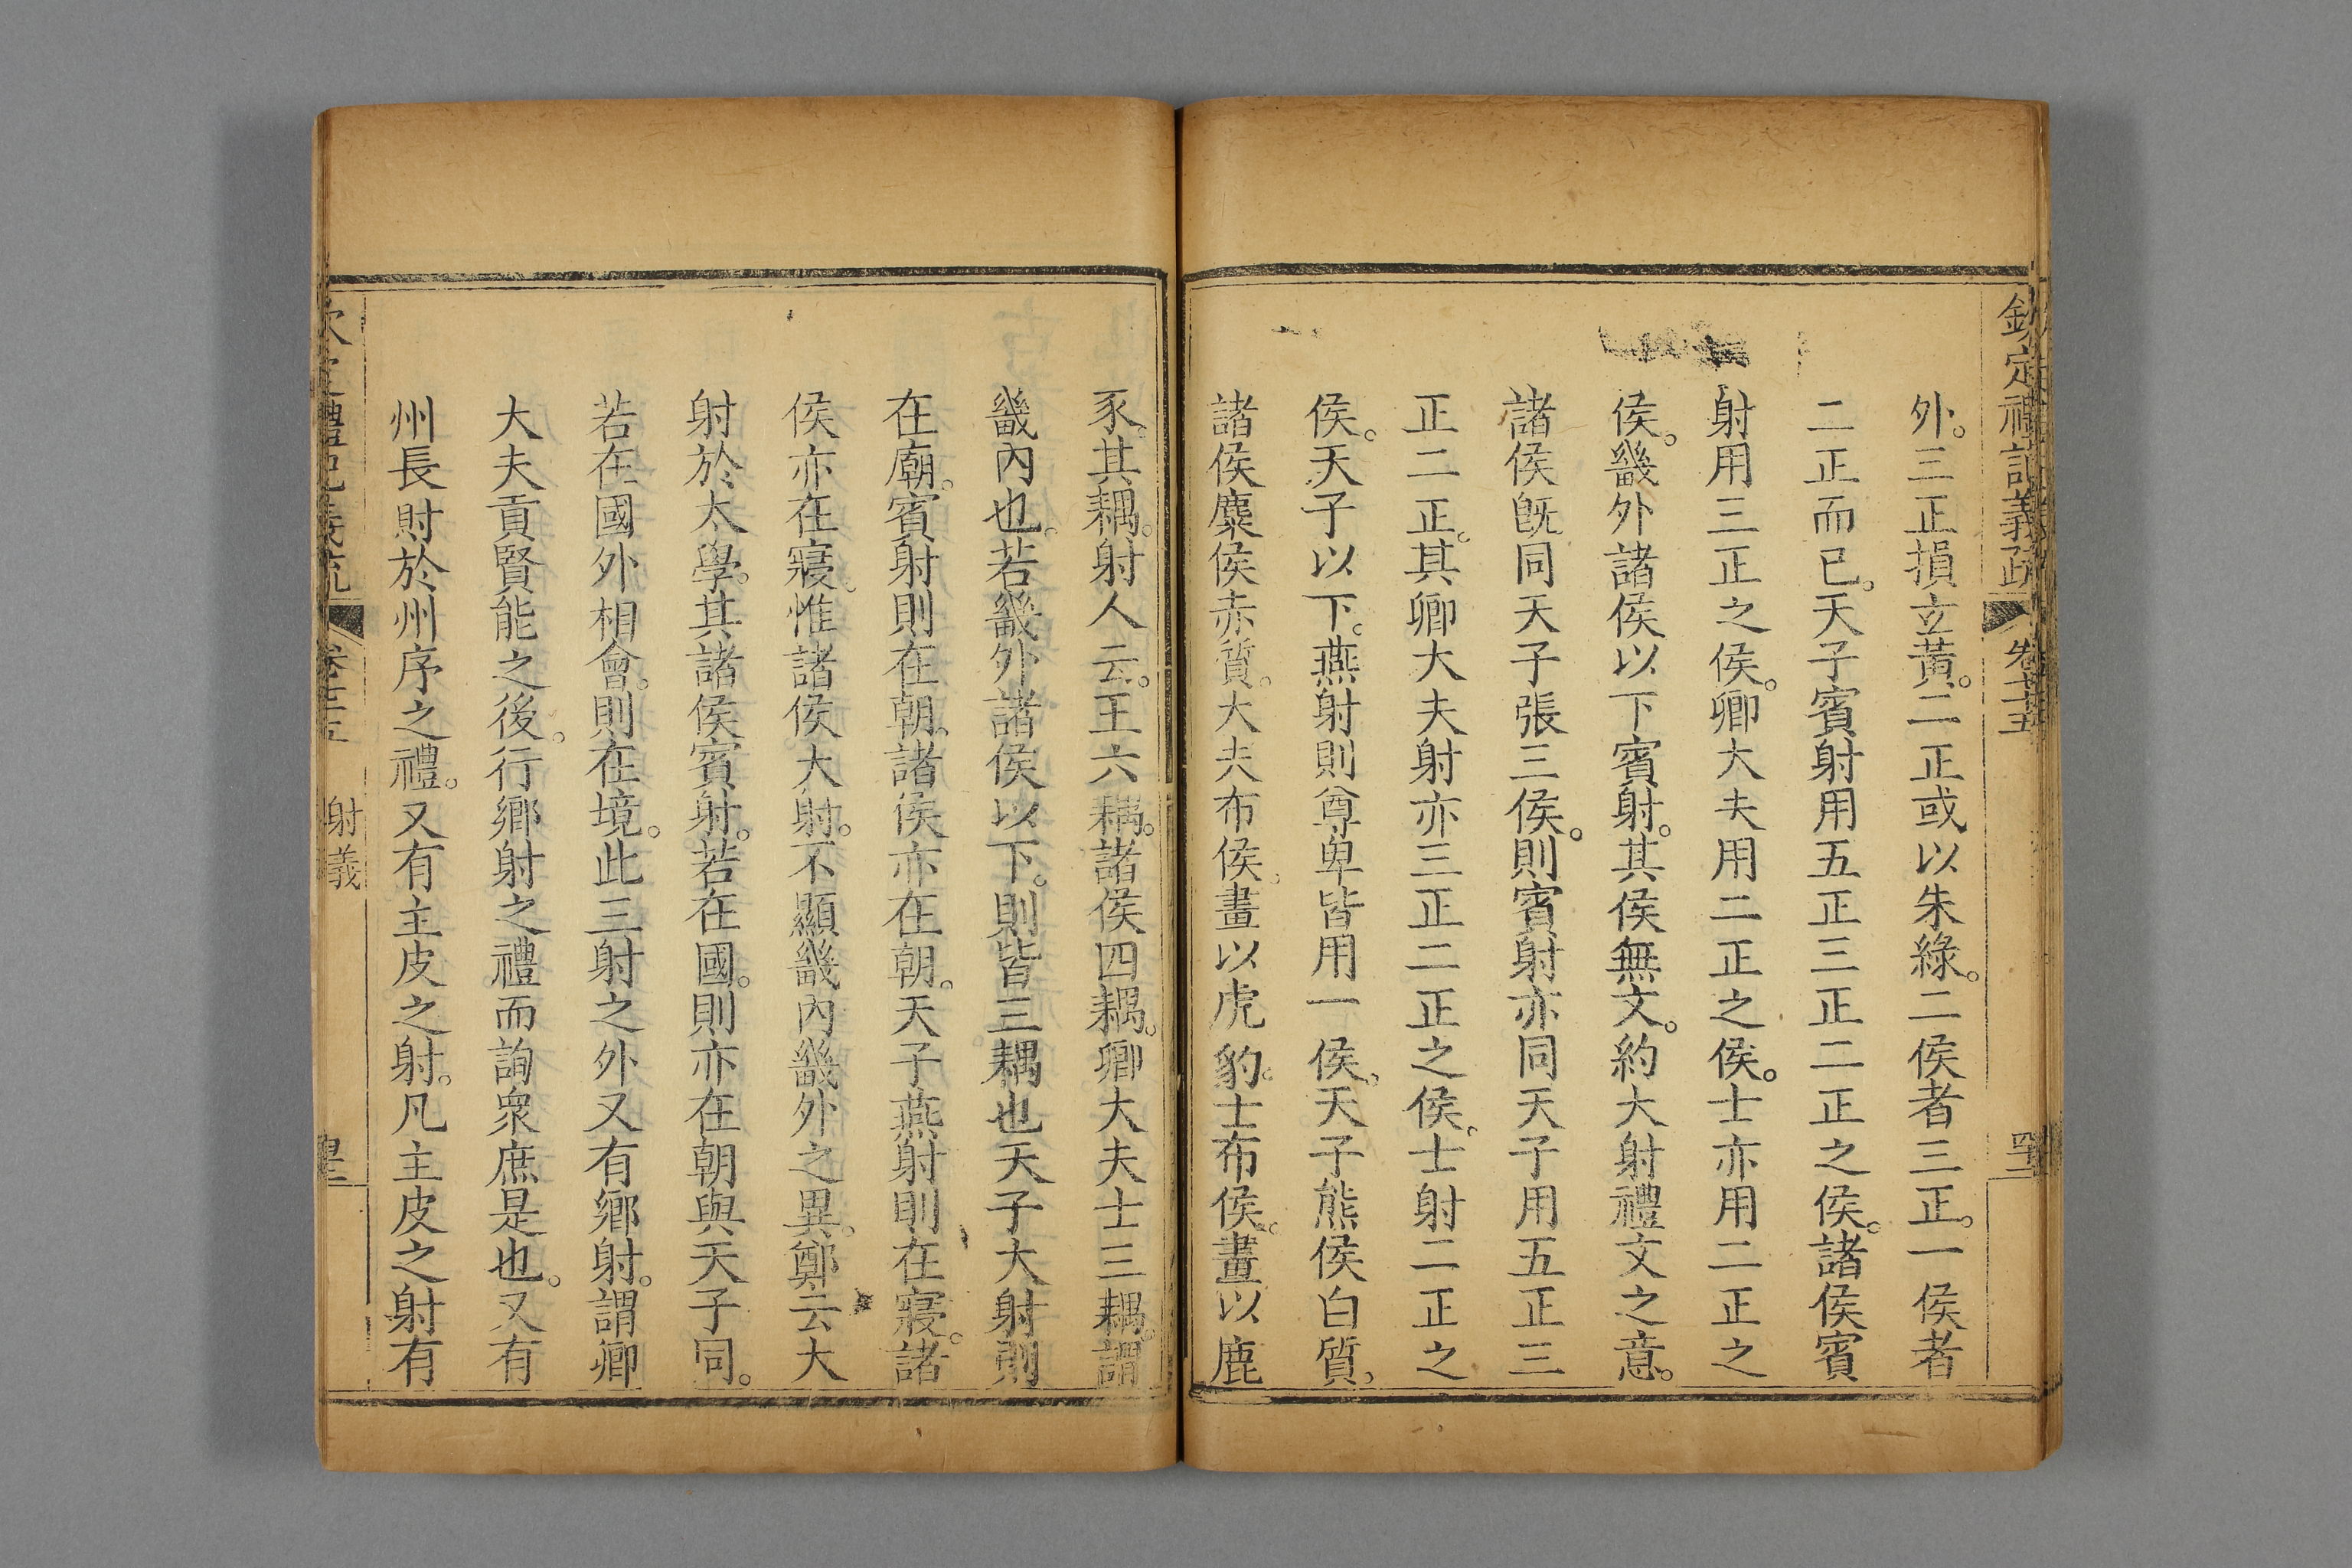 欽定禮記義疏 卷七十五 射義
外。三正損玄黃。二正或以朱綠。二侯者三正。一侯者
二正而已。天子賓射用五正三正二正之侯。諸侯賓
射用三正之侯。卿大夫用二正之侯。士亦用二正之
侯。畿外諸侯以下賓射。其侯無文。約大射禮文之意。
諸侯旣同天子張三侯。則賓射亦同天子用五正三
正二正。其卿大夫射亦三正二正之侯。士射二正之
侯。天子以下。燕射則尊卑皆用一侯。天子熊侯白質。
諸侯麋侯赤質。大夫布侯。畫以虎豹。士布侯。畫以鹿
豕。其耦。射人云。王六耦。諸侯四耦。卿大夫士三耦。謂
畿內也。若畿外諸侯以下。則皆三耦也天子大射則
在廟。賓射則在朝。諸侯亦在朝。天子燕射則在寢。諸
侯亦在寢。惟諸侯大射。不顯畿內畿外之異。鄭云大
射於大學。其諸侯賓射。若在國。則亦在朝與天子同。
若在國外相會。則在境。此三射之外又有鄉射。謂卿
大夫貢賢能之後。行鄉射之禮而詢衆庶是也。又有
州長射於州序之禮。又有主皮之射。凡主皮之射有
射義